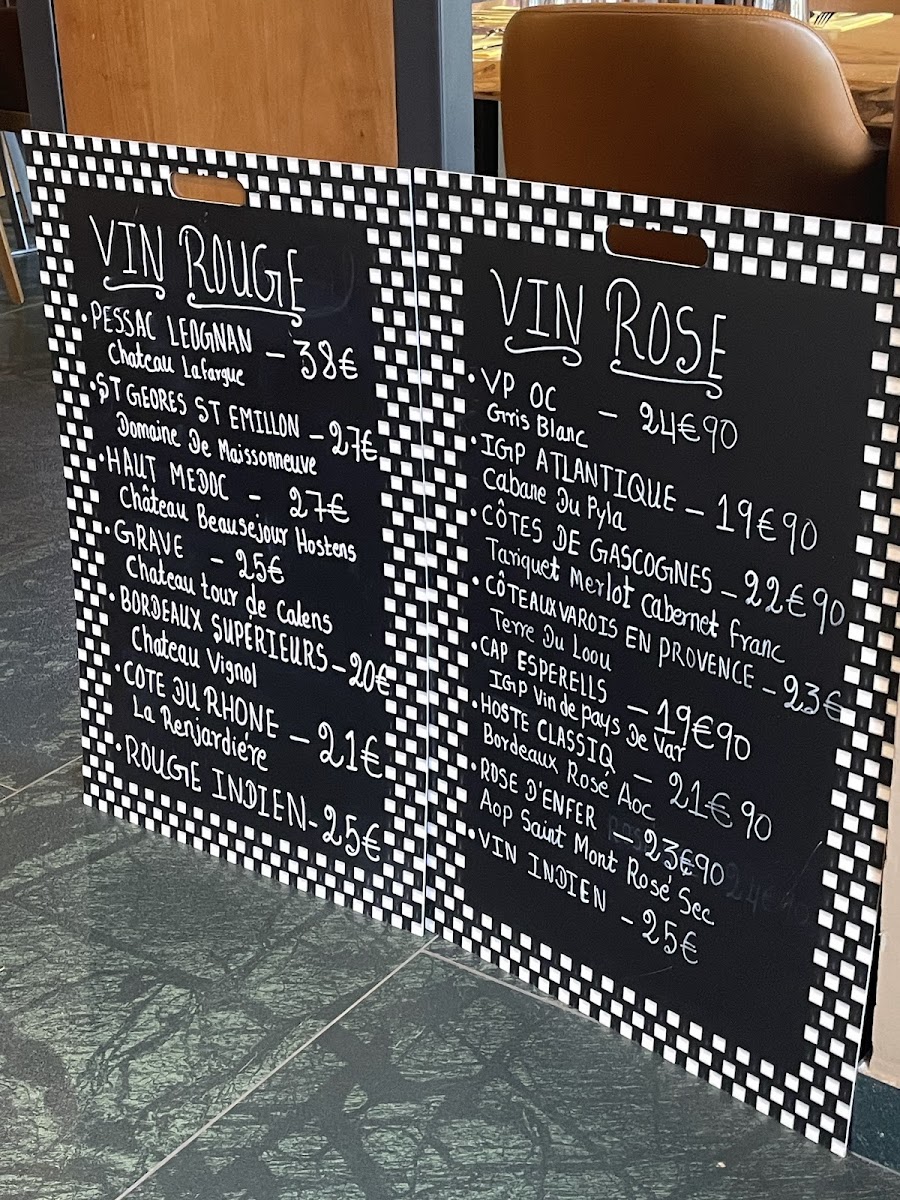 VIN ROUGE
• PESSAC LEOGNAN – 38€
Chateau Lafargue
• ST GEORES ST EMILLON – 27€
Domaine De Maissonneuve
• HAUT MEDOC – 27€
Château Beausejour Hostens
• GRAVE – 25€
Chateau tour de Calens
• BORDEAUX SUPERIEURS – 20€
Chateau Vignol
• COTE DU RHONE – 21€
La Renjardiére
• ROUGE INDIEN – 25€
VIN ROSE
• VP OC – 24€90
Grris Blanc
• IGP ATLANTIQUE – 19€90
Cabane Du Pyla
• CÔTES DE GASCOGNES – 22€90
Tariquet Merlot Cabernet franc
• CÔTEAUX VAROIS EN PROVENCE – 23€
Terre Du Loou
• CAP ESPERELLS – 19€90
IGP Vin de pays De Var
• HOSTE CLASSIQ – 21€90
Bordeaux Rosé Aoc
• ROSE D'ENFER – 23€90
Aop Saint Mont Rosé Sec
• VIN INDIEN – 25€